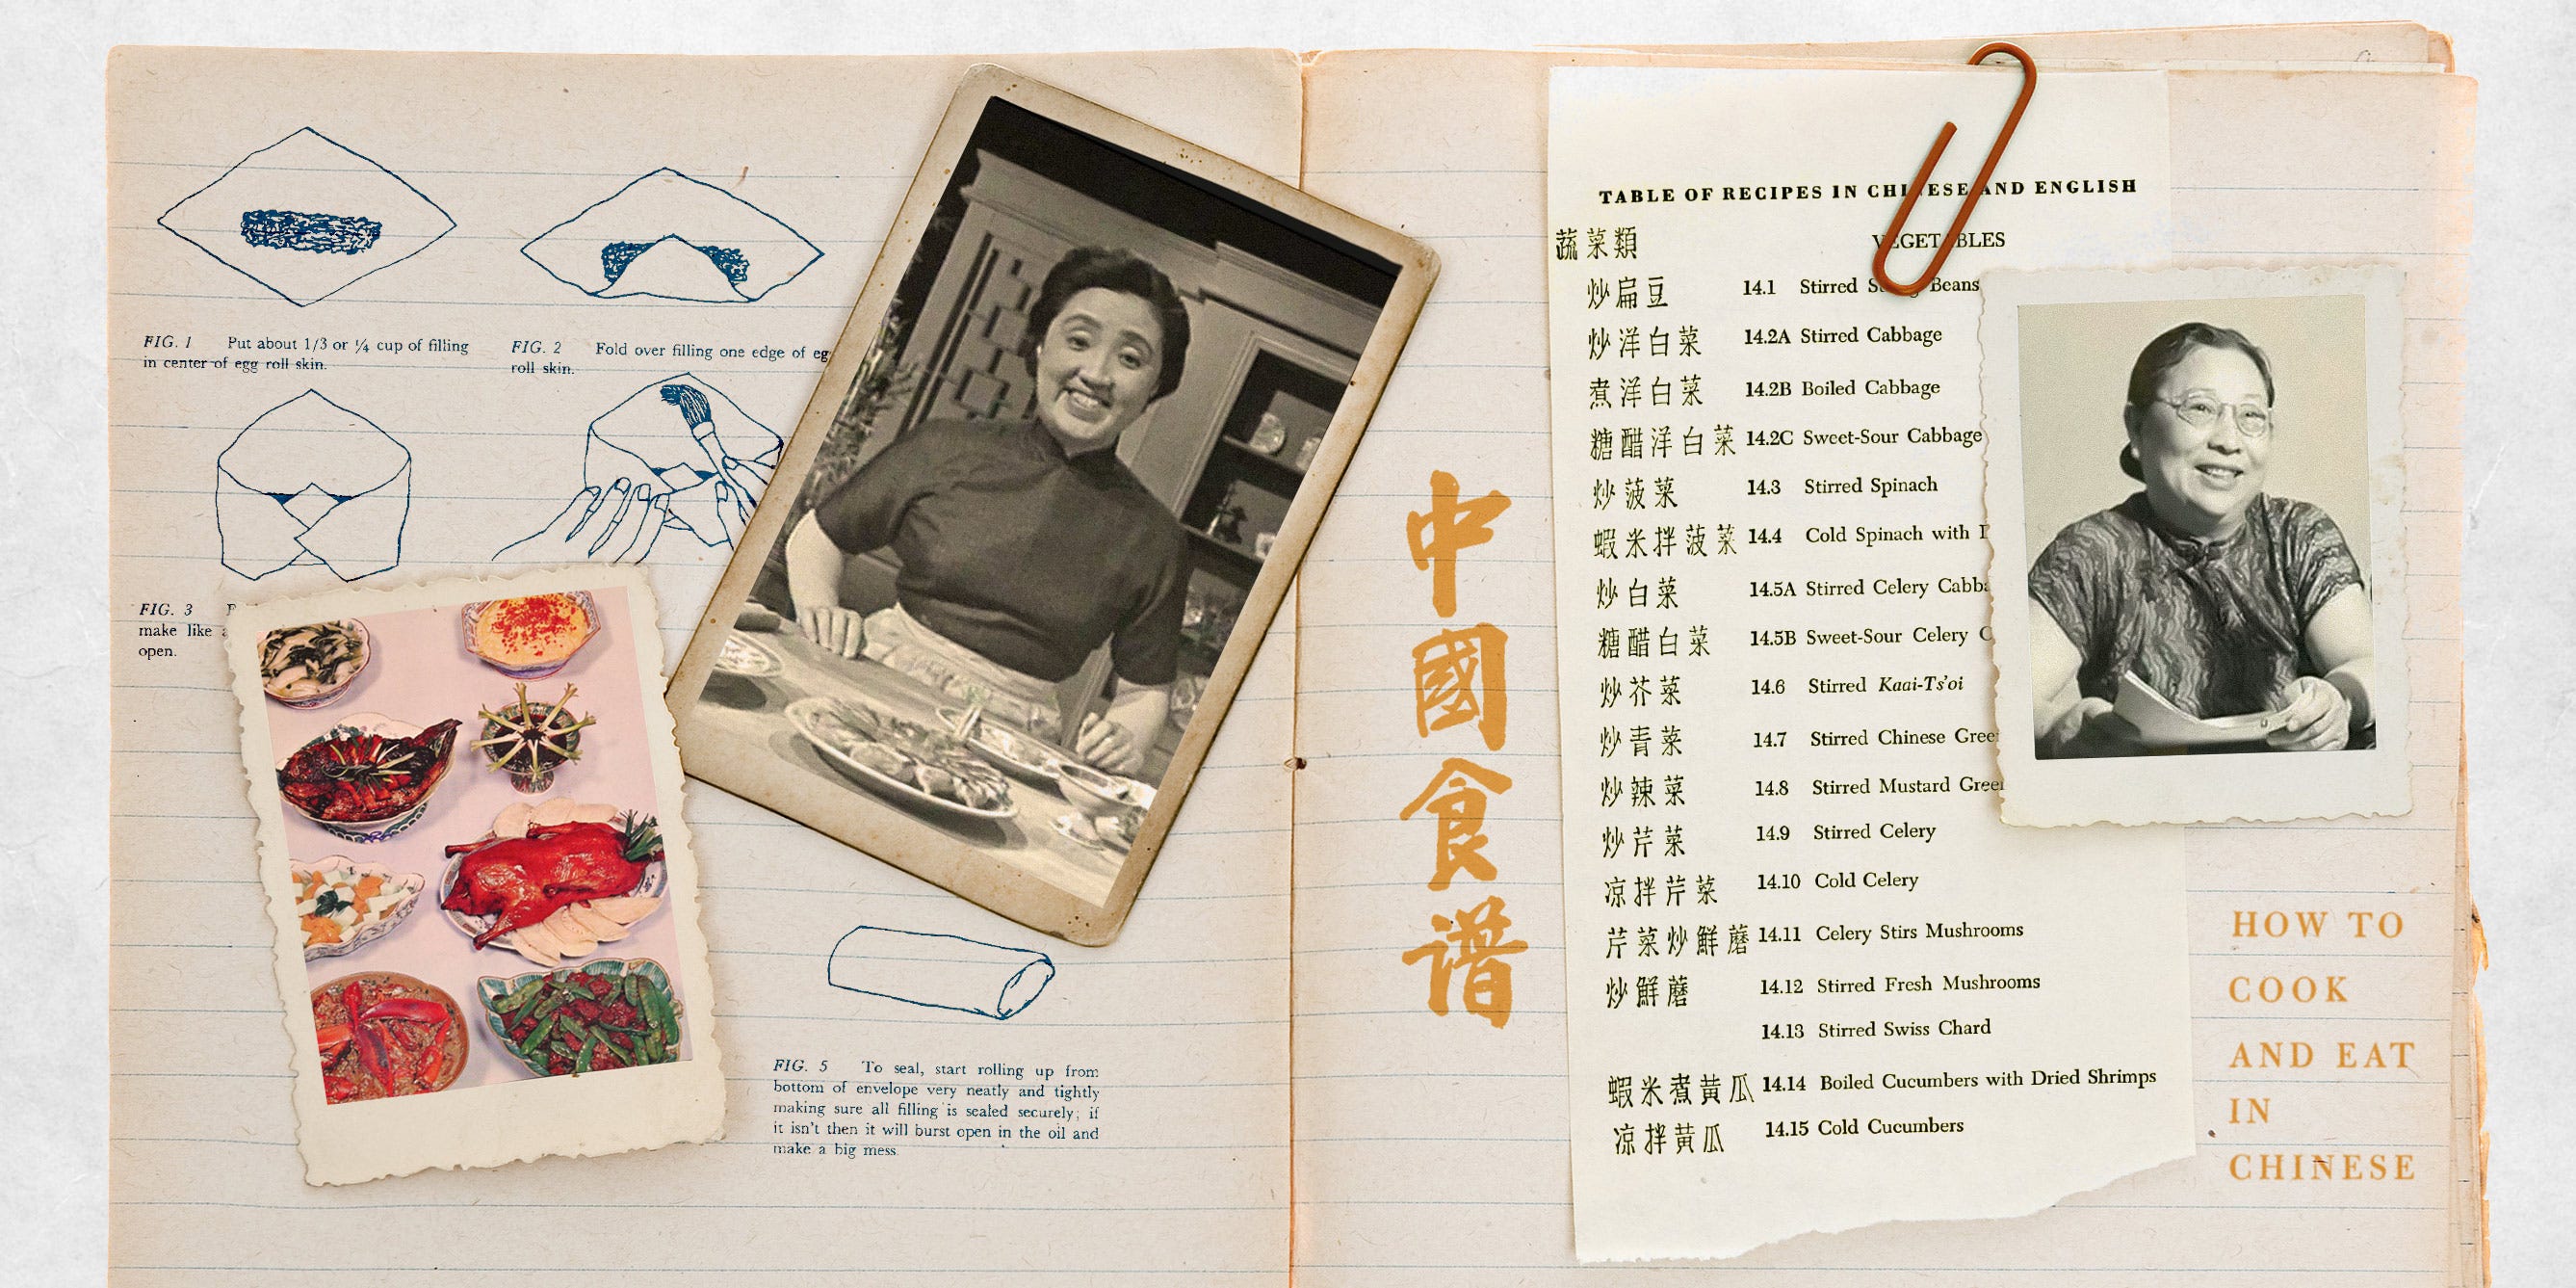 FIG. 1 Put about 1/3 or ¼ cup of filling
in center of egg roll skin.
FIG. 2 Fold over filling one edge of
roll skin.
FIG. 3
make like
open.
FIG. 5 To seal, start rolling up from
bottom of envelope very neatly and tightly
making sure all filling is sealed securely; if
it isn't then it will burst open in the oil and
make a big mess.
中國食谱
TABLE OF RECIPES IN CHINESE AND ENGLISH
蔬菜類 VEGETABLES
炒扁豆 14.1 Stirred Beans
炒洋白菜 14.2A Stirred Cabbage
煮洋白菜 14.2B Boiled Cabbage
糖醋洋白菜 14.2C Sweet-Sour Cabbage
炒菠菜 14.3 Stirred Spinach
蝦米拌菠菜 14.4 Cold Spinach with
炒白菜 14.5A Stirred Celery
糖醋白菜 14.5B Sweet-Sour Celery
炒芥菜 14.6 Stirred Kaai-Ts'oi
炒青菜 14.7 Stirred Chinese
炒辣菜 14.8 Stirred Mustard
炒芹菜 14.9 Stirred Celery
凉拌芹菜 14.10 Cold Celery
芹菜炒鮮蘑 14.11 Celery Stirs Mushrooms
炒鮮蘑 14.12 Stirred Fresh Mushrooms
14.13 Stirred Swiss Chard
蝦米煮黃瓜 14.14 Boiled Cucumbers with Dried Shrimps
凉拌黃瓜 14.15 Cold Cucumbers
HOW TO
COOK
AND EAT
IN
CHINESE